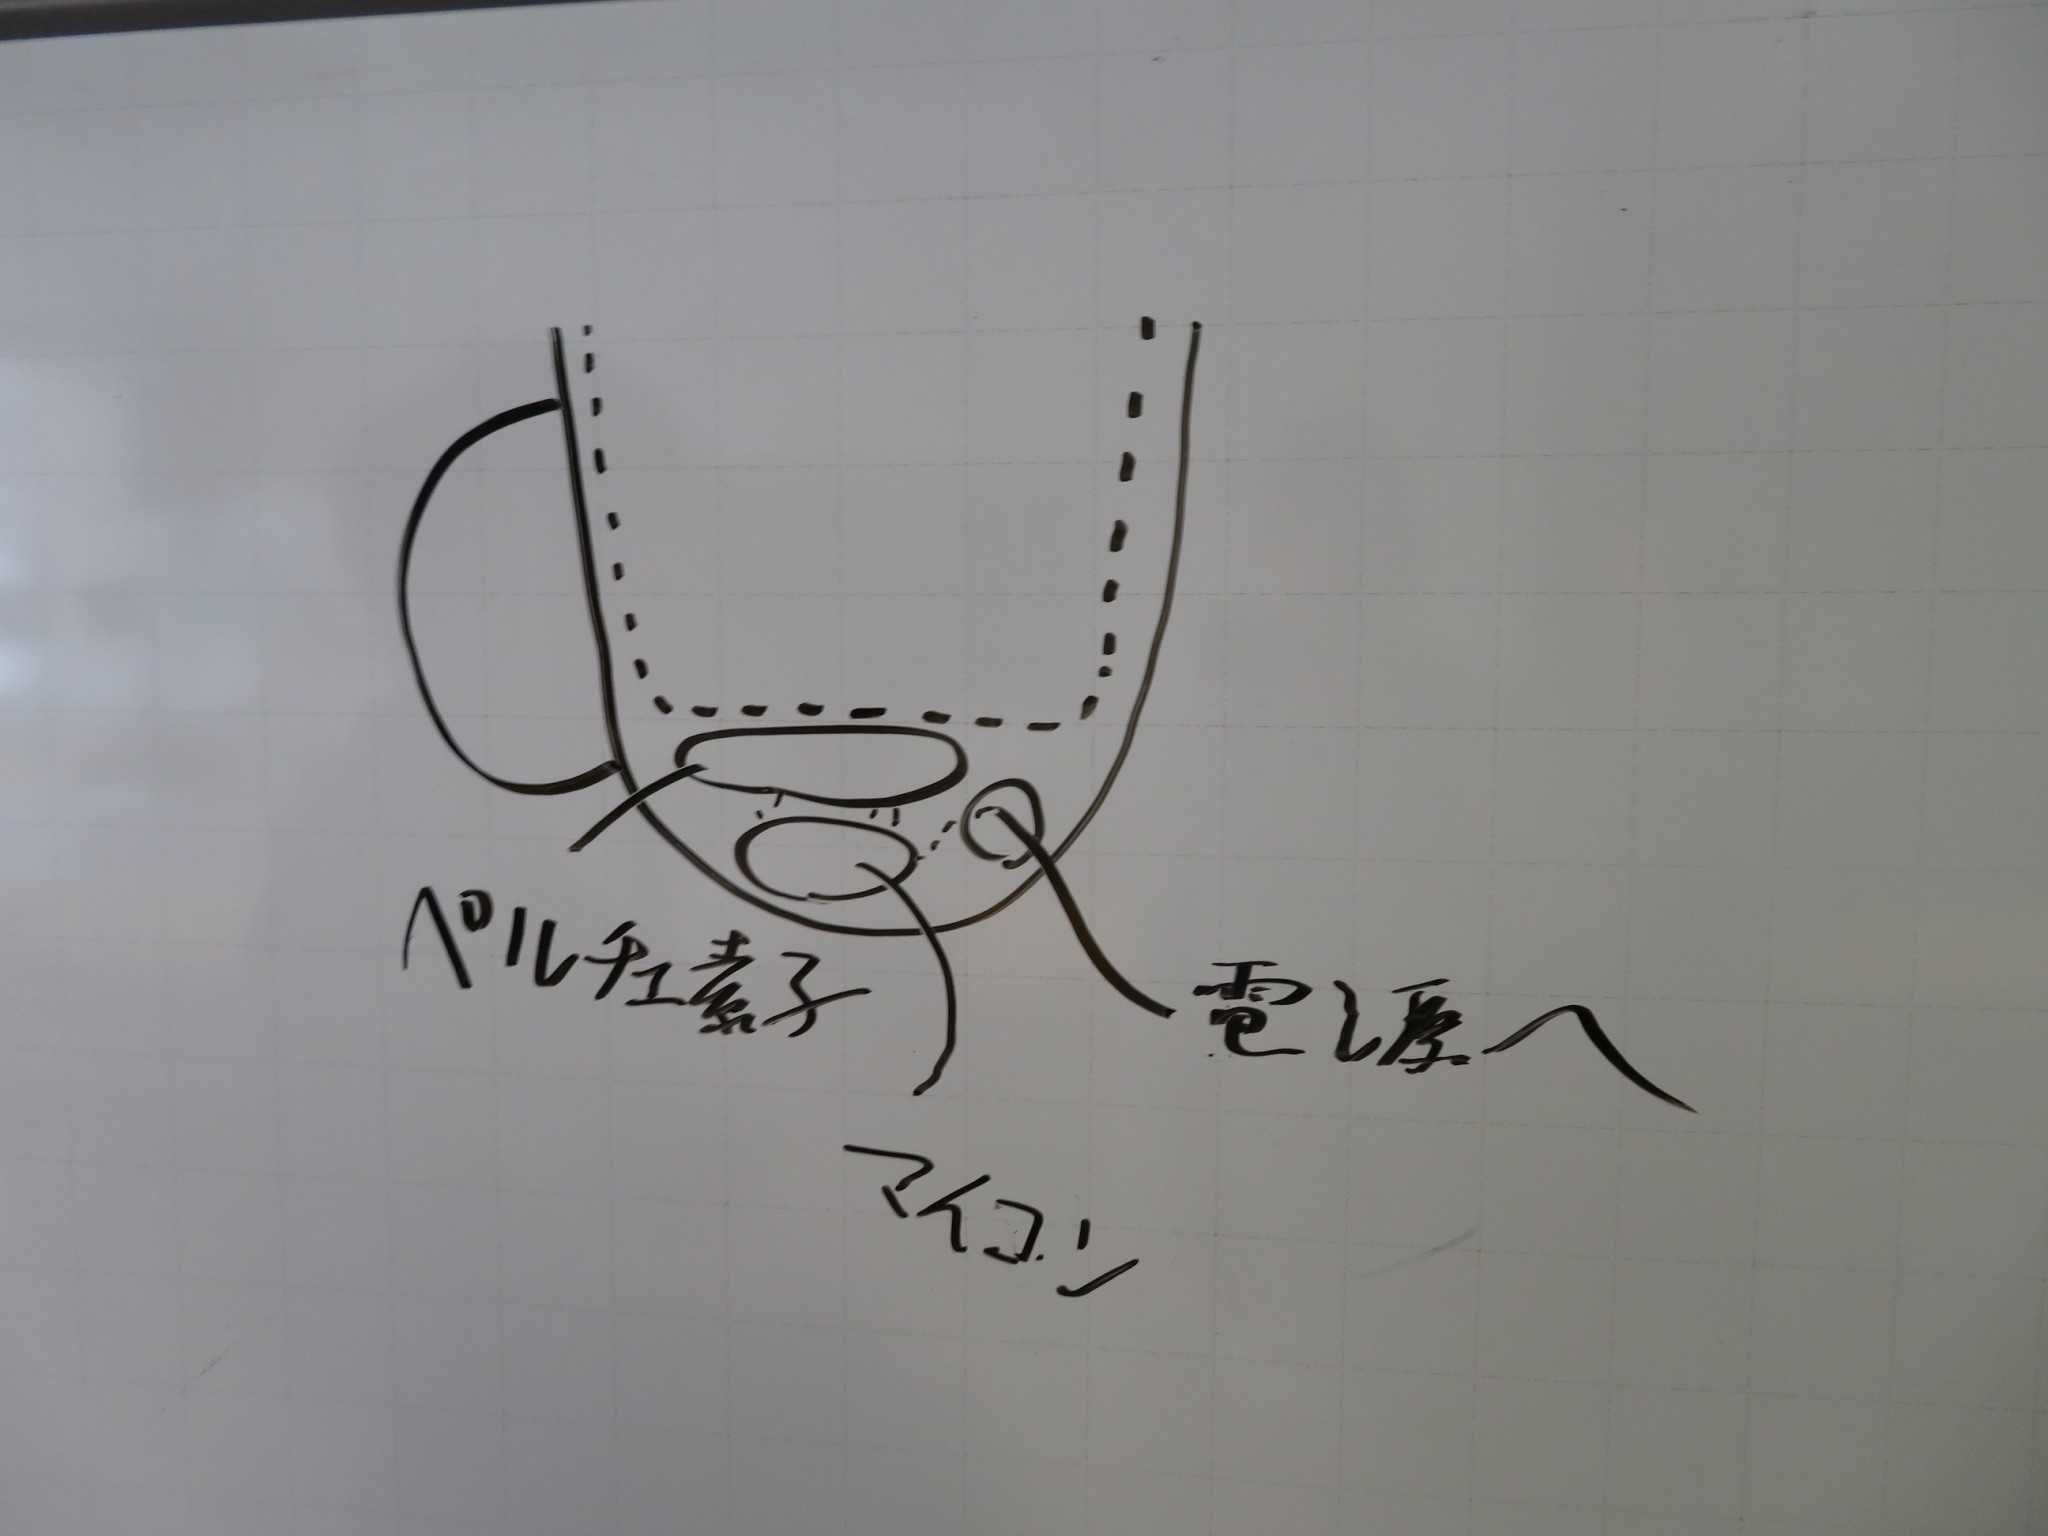 ペルチェ素子
電源へ
マイコン